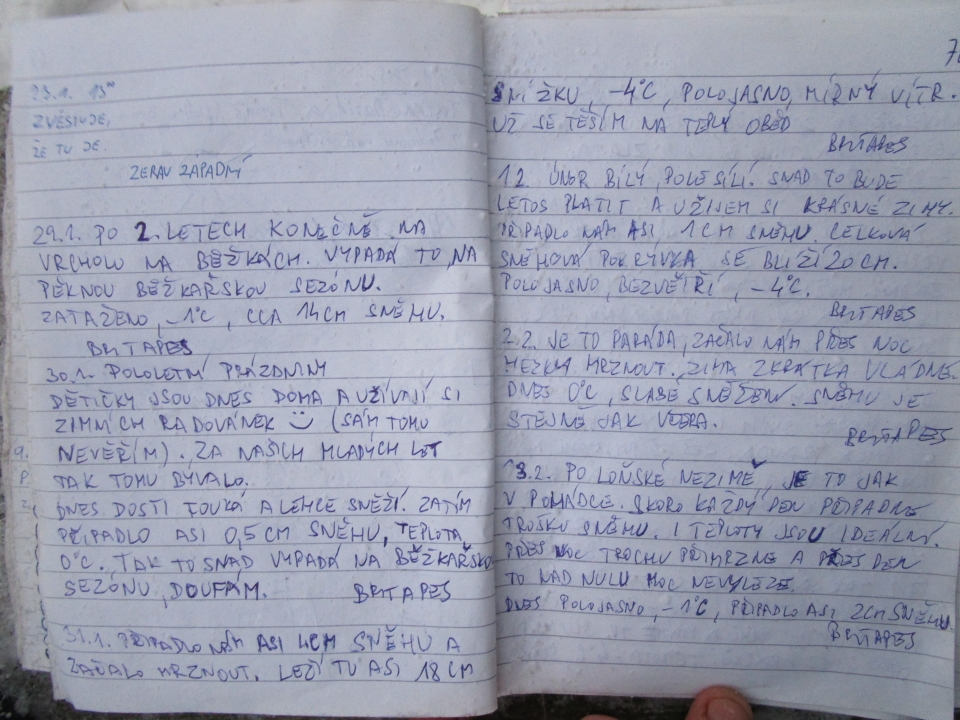 23.1. 15⁰⁰
ZVĚSTUJE,
ŽE TU JE.
ZERAV ZÁPADNÍ
29.1. PO 2. LETECH KONEČNĚ NA
VRCHOLU NA BĚŽKÁCH. VYPADÁ TO NA
PĚKNOU BĚŽKAŘSKOU SEZÓNU.
ZATAŽENO, -1°C, CCA 14CM SNĚHU.
BRTAPES
30.1. POLOLETNÍ PRÁZDNINY
DĚTIČKY JSOU DNES DOMA A UŽÍVAJÍ SI
ZIMNÍCH RADOVÁNEK (SÁM TOMU
NEVĚŘÍM). ZA NAŠICH MLADÝCH LET
TAK TOMU BÝVALO.
DNES DOSTI FOUKÁ A LEHCE SNĚŽÍ. ZATÍM
PŘIPADLO ASI 0,5CM SNĚHU, TEPLOTA
0°C. TAK TO SNAD VYPADÁ NA BĚŽKAŘSKO
SEZÓNU, DOUFÁM. BRTAPES
31.1. PŘIPADLO NÁM ASI 4CM SNĚHU A
ZAČALO MRZNOUT. LEŽÍ TU ASI 18 CM
SNÍŽKU, -4°C, POLOJASNO, MÍRNÝ VÍTR.
UŽ SE TĚŠÍM NA TEPLÝ OBĚD
BRTAPES
1.2. ÚNOR BÍLÝ, POLE SÍLÍ. SNAD TO BUDE
LETOS PLATIT A UŽIJEM SI KRÁSNÉ ZIMY.
PŘIPADLO NÁM ASI 1CM SNĚHU. CELKOVÁ
SNĚHOVÁ POKRÝVKA SE BLÍŽÍ 20CM.
POLOJASNO, BEZVĚTŘÍ, -4°C.
BRTAPES
2.2. JE TO PARÁDA, ZAČALO NÁM PŘES NOC
HEZKY MRZNOUT. ZIMA ZKRÁTKA VLÁDNE.
DNES 0°C, SLABÉ SNĚŽENÍ. SNĚHU JE
STEJNĚ JAK VČERA.
BRTAPES
3.2. PO LOŇSKÉ NEZIMĚ, JE TO JAK
V POHÁDCE. SKORO KAŽDÝ DEN PŘIPADNE
TROŠKU SNĚHU. I TEPLOTY JSOU IDEÁLNÍ.
PŘES NOC TROCHU PŘIMRZNE A PŘES DEN
TO NAD NULU MOC NEVYLEZE.
DNES POLOJASNO, -1°C, PŘIPADLO ASI 2CM SNĚHU.
BRTAPES